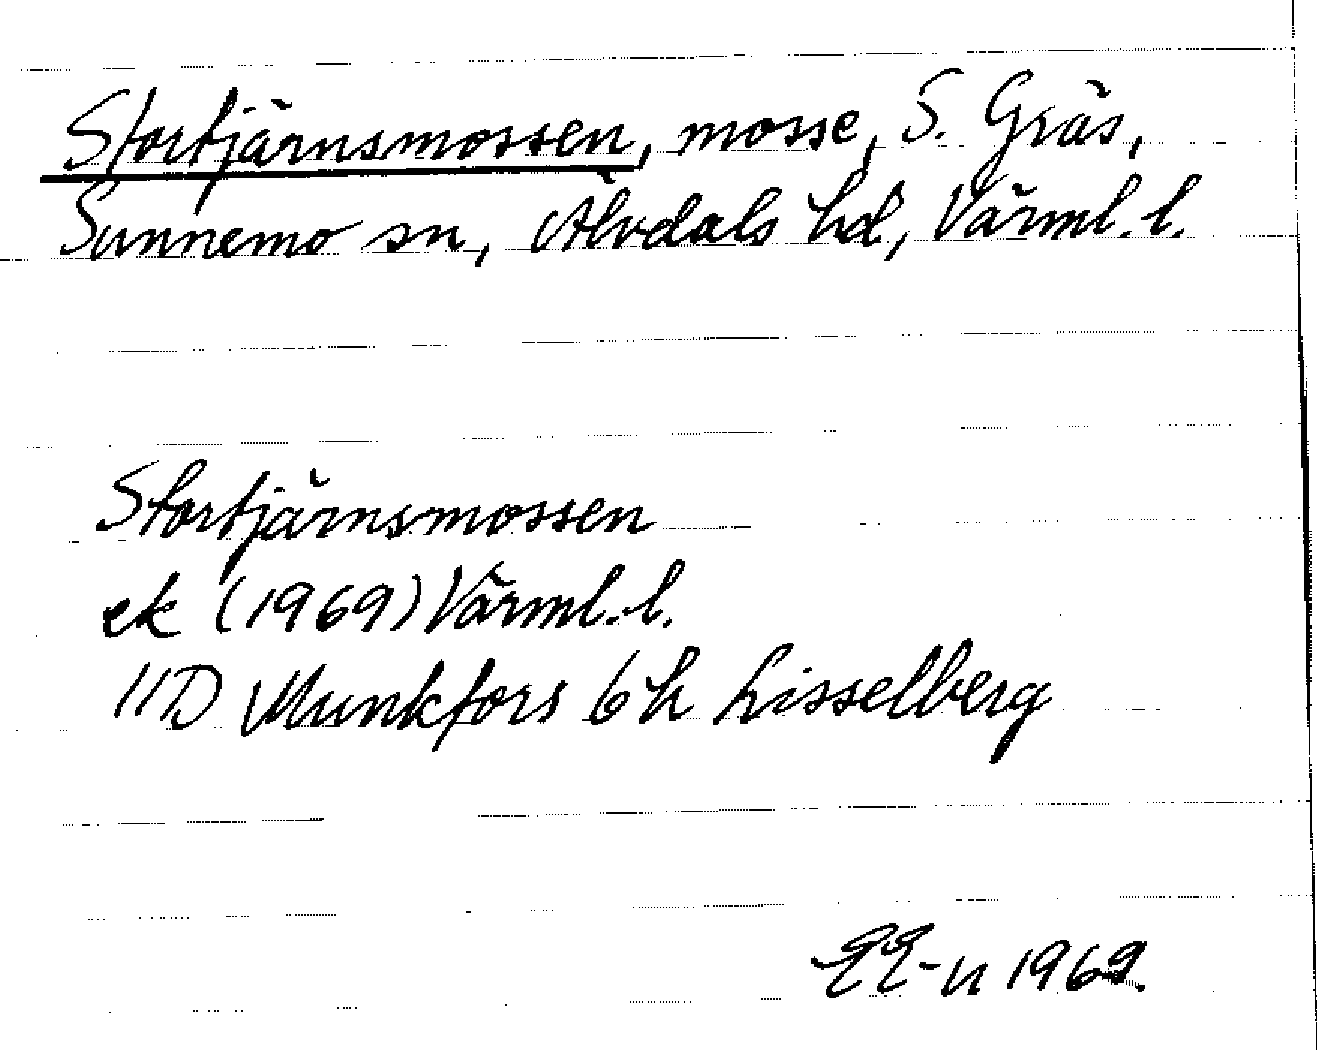 Stortjärnsmossen, mosse, S. Gräs,
Sunnemo sn, Älvdals hd, Värml. l.
Stortjärnsmossen
ek (1969) Värml. l.
11D Munkfors 6h Lisselberg
EE-n 1969.